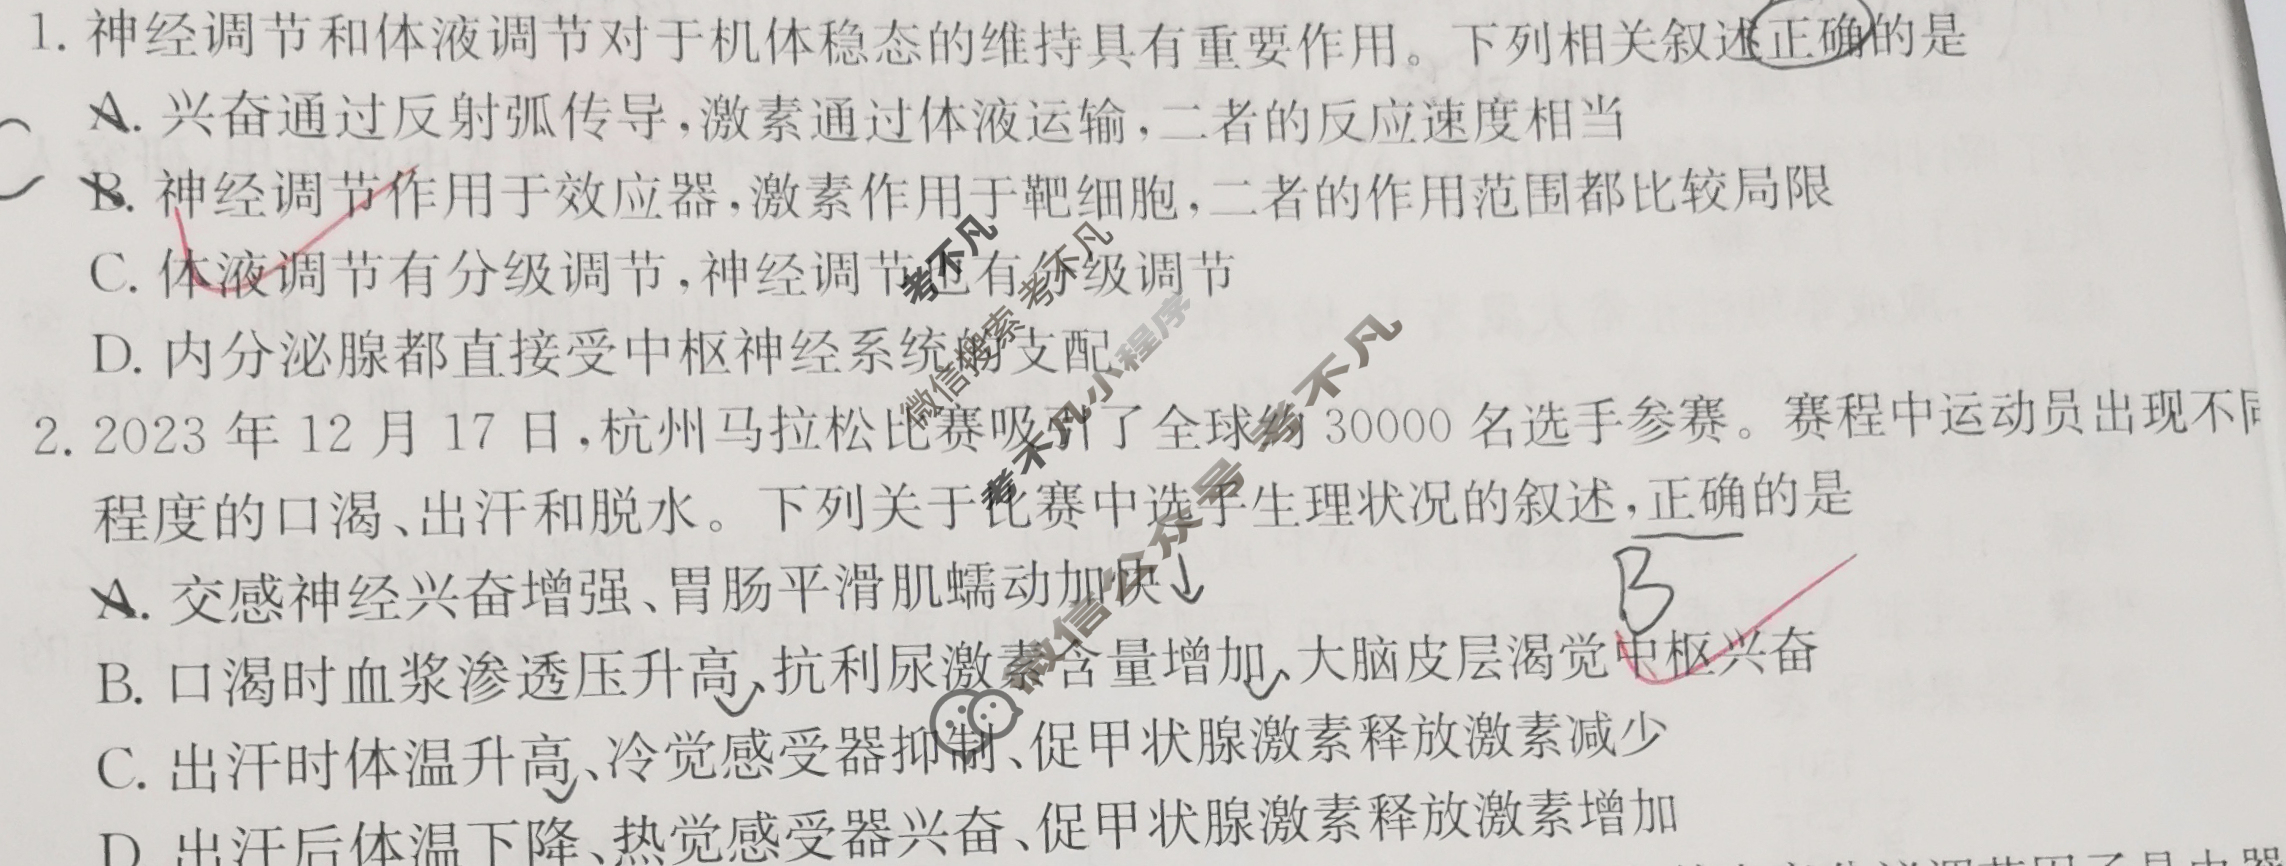 1. 神经调节和体液调节对于机体稳态的维持具有重要作用。下列相关叙述正确的是
A. 兴奋通过反射弧传导,激素通过体液运输,二者的反应速度相当
B. 神经调节作用于效应器,激素作用于靶细胞,二者的作用范围都比较局限
C
C. 体液调节有分级调节,神经调节也有分级调节
D. 内分泌腺都直接受中枢神经系统的支配
2. 2023 年 12 月 17 日,杭州马拉松比赛吸引了全球约 30000 名选手参赛。赛程中运动员出现不同
程度的口渴、出汗和脱水。下列关于比赛中选手生理状况的叙述,正确的是
A. 交感神经兴奋增强、胃肠平滑肌蠕动加快↓
B
B. 口渴时血浆渗透压升高、抗利尿激素含量增加、大脑皮层渴觉中枢兴奋
C. 出汗时体温升高、冷觉感受器抑制、促甲状腺激素释放激素减少
D. 出汗后体温下降、热觉感受器兴奋、促甲状腺激素释放激素增加
考不凡
微信搜索 考不凡
考不凡小程序
微信公众号 考不凡